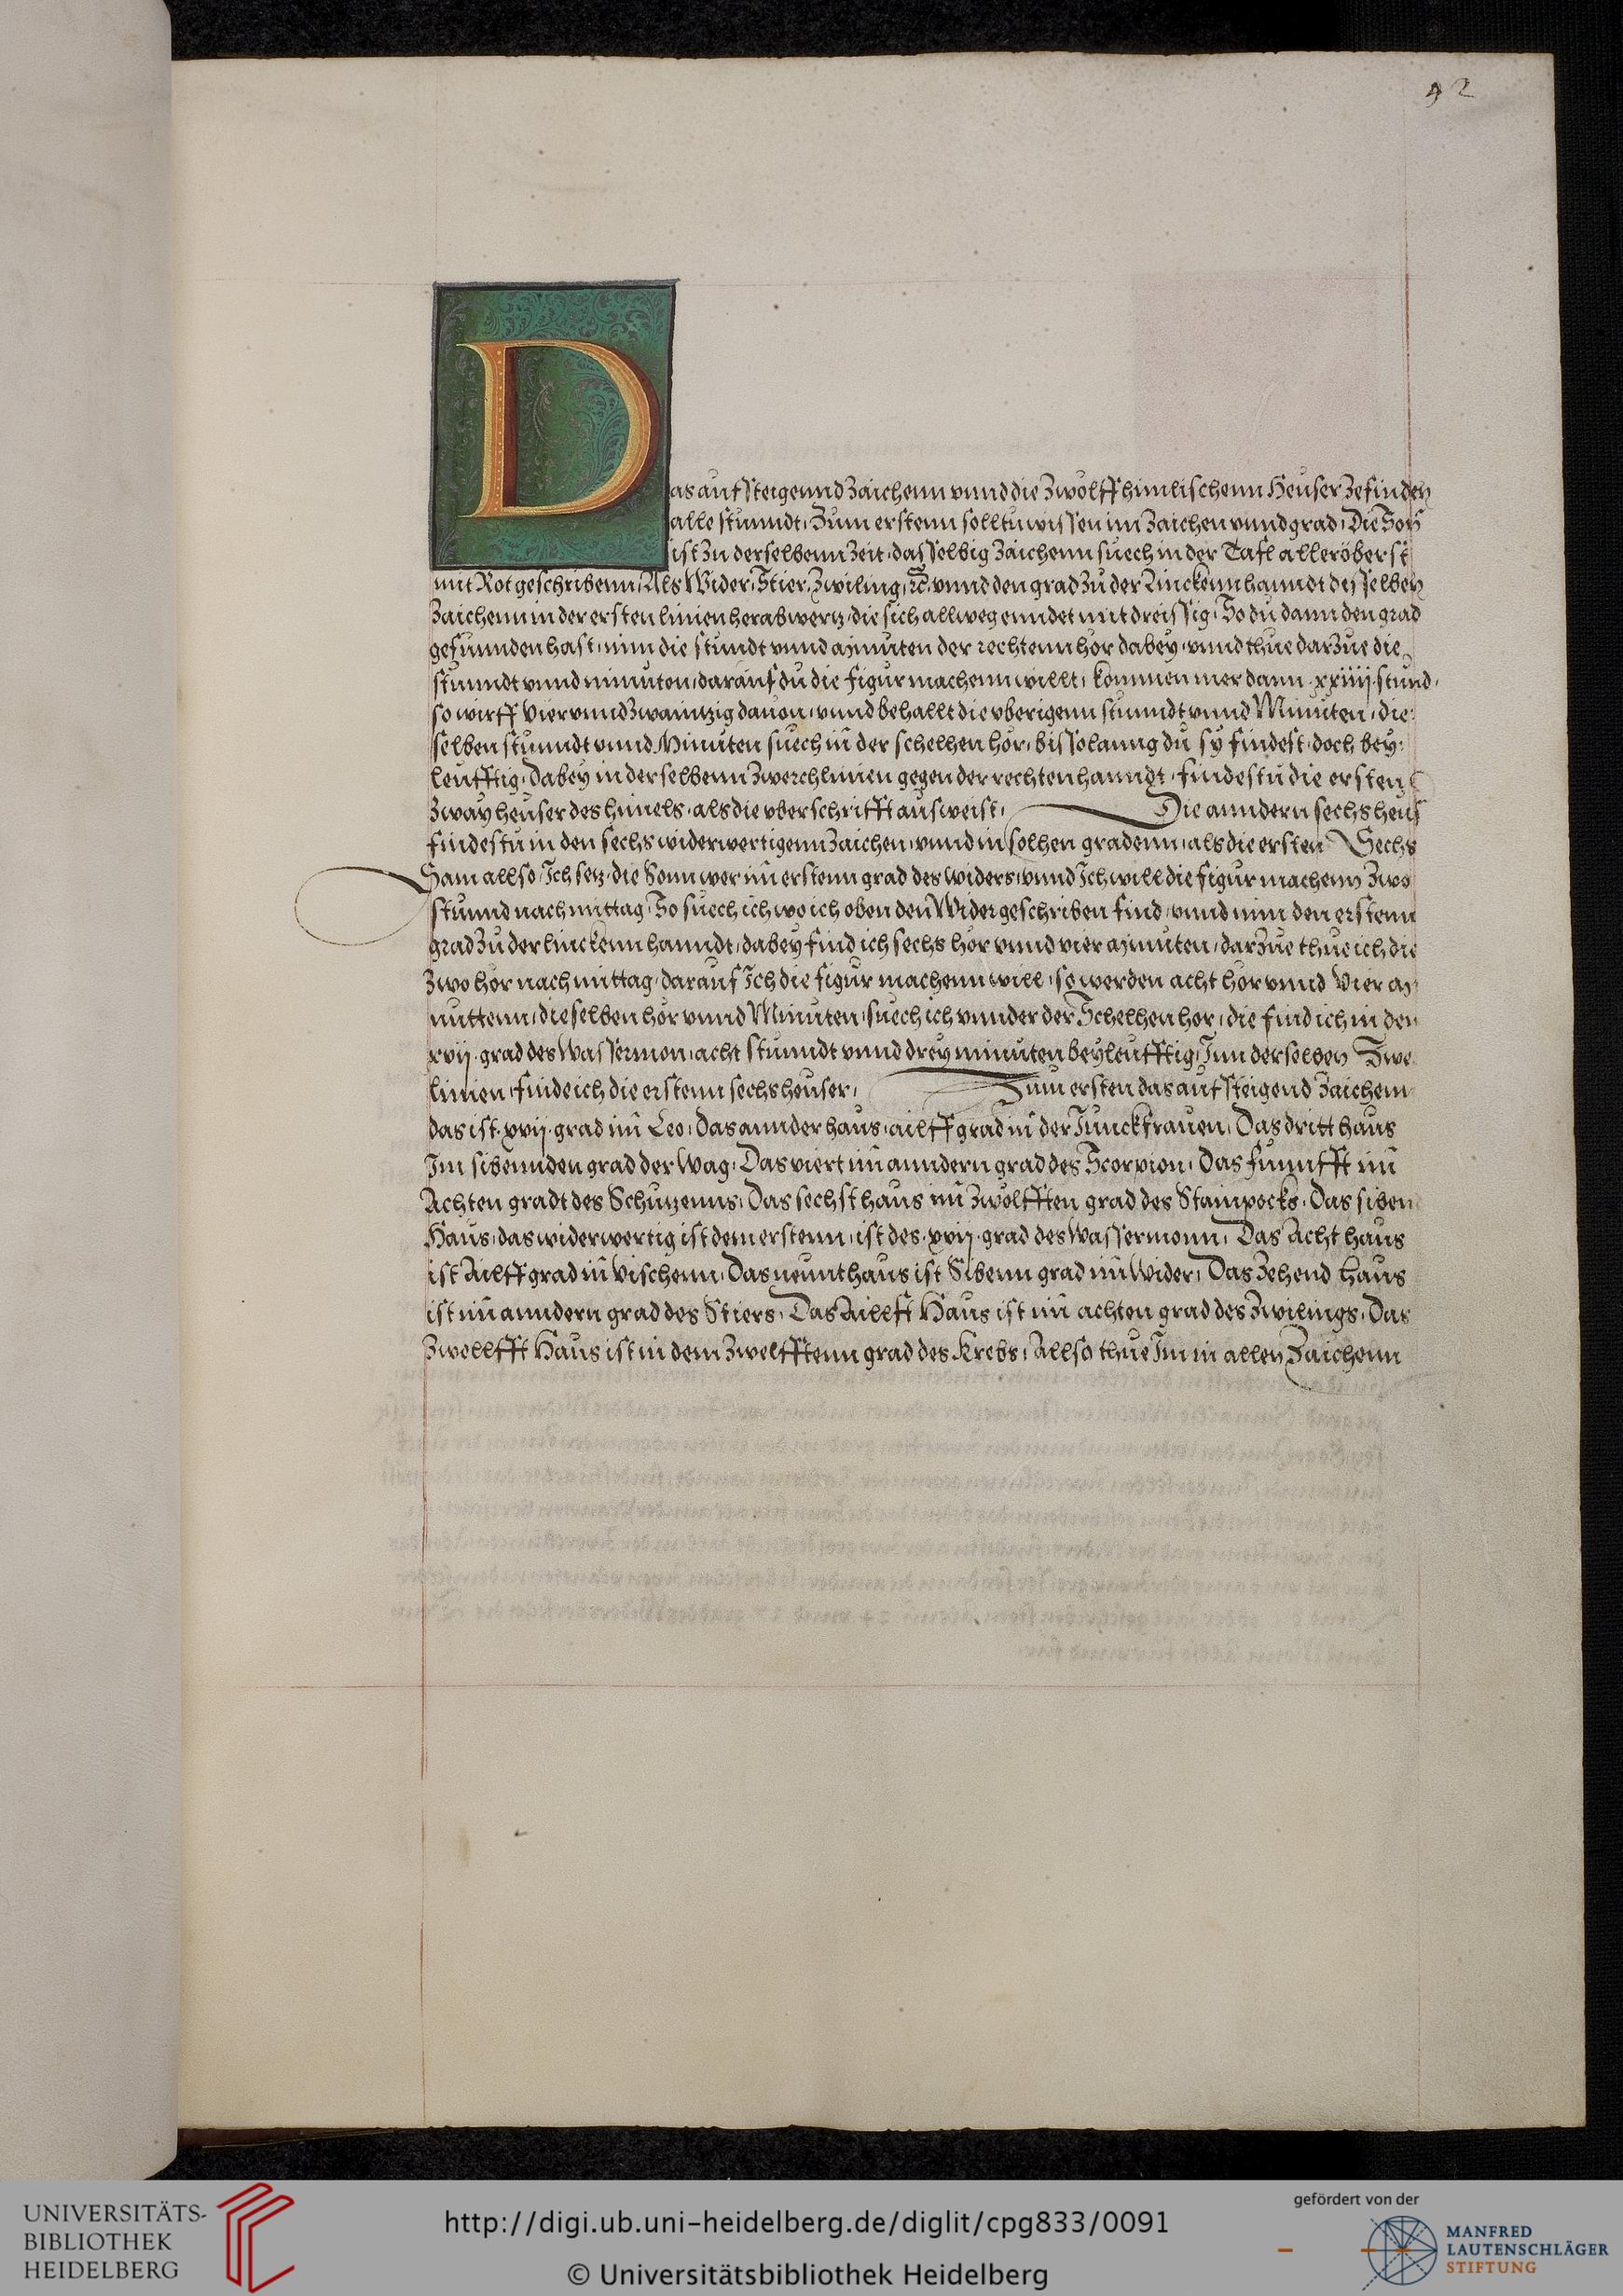 42
Das aufsteigennd Zaichenn vnnd die Zwölff himlischenn Heuser Zefinden
alle stunndt, Zum erstenn solltu wissen im Zaichen vnnd grad, Die Son
ist Zu derselbenn Zeit, dasselbig Zaichenn suech in der Tafl alleröberst
mit Rot geschribenn, Als Wider, Stier, Zwiling, ꝛc. vnnd den grad Zu der Linckenn hanndt desselben
Zaichenn in der ersten linien herabwertz, die sich allweg enndet mit dreissig, So du dann den grad
gefunnden hast, nim die stundt vnnd minuten der rechtenn hor dabey, vnnd thue darzue die
stunndt vnnd minuten, darauf du die figur machenn willt, kommen mer dann .xxiiij. stund,
so wirff Vier vnnd Zwaintzig dauon, vnnd behallt die vberigenn stunndt vnnd Minuten, die
selben stunndt vnnd Minuten suech in der schelhen hor, bissolanng du sy findest, doch bey
leufftig, Dabey in derselbenn Zwerchlinien gegen der rechten hanndt, findestu die ersten
Zway heuser des himels, als die vberschrifft ausweist, Die anndern sechs heus
findestu in den sechs widerwertigenn Zaichen, vnnd in solhen gradenn, als die ersten Sechs
Sam allso, Ich setz, die Sonn wer im erstenn grad des widers, vnnd Ich will die figur machenn Zwo
stunnd nach mittag, So suech ich wo ich oben den Wider geschriben find, vnnd nim den erstenn
grad Zu der linckenn hanndt, dabey find ich sechs hor vnnd vier minuten, darzue thue ich die
Zwo hor nach mittag, darauf Ich die figur machenn will, so werden acht hor vnnd Vier mi
nuttenn, dieselben hor vnnd Minuten, suech ich vnnder der Schelhen hor, die find ich in den
xvij. grad des Wassermon, acht stunndt vnnd drey minuten beyleufftig, Inn derselben Zwe
linien, finde ich die erstenn sechs heuser, Zum ersten das aufsteigend Zaichenn
das ist .xvij. grad im Leo, Das annder haus, ailff grad in der Junckfrauen, Das dritt haus
Im sibennden grad der Wag, Das viert im anndern grad des Scorpion, Das funnfft im
Achten gradt des Schutzenns, Das sechst haus im Zwölfften grad des Stainpocks, Das siben
Haus, das widerwertig ist dem erstenn, ist des .xvij. grad des Wassermonn, Das Acht haus
ist Ailff grad im vischenn, Das neunt haus ist Sibenn grad im Wider, Das Zehend haus
ist im anndern grad des Stiers, Das Aillfft Haus ist im achten grad des Zwilings, Das
Zwellfft Haus ist in dem Zwelfftenn grad des Krebs, Allso thue Im in allen Zaichenn
UNIVERSITÄTS-
BIBLIOTHEK
HEIDELBERG
http://digi.ub.uni-heidelberg.de/diglit/cpg833/0091
© Universitätsbibliothek Heidelberg
gefördert von der
MANFRED
LAUTENSCHLÄGER
STIFTUNG